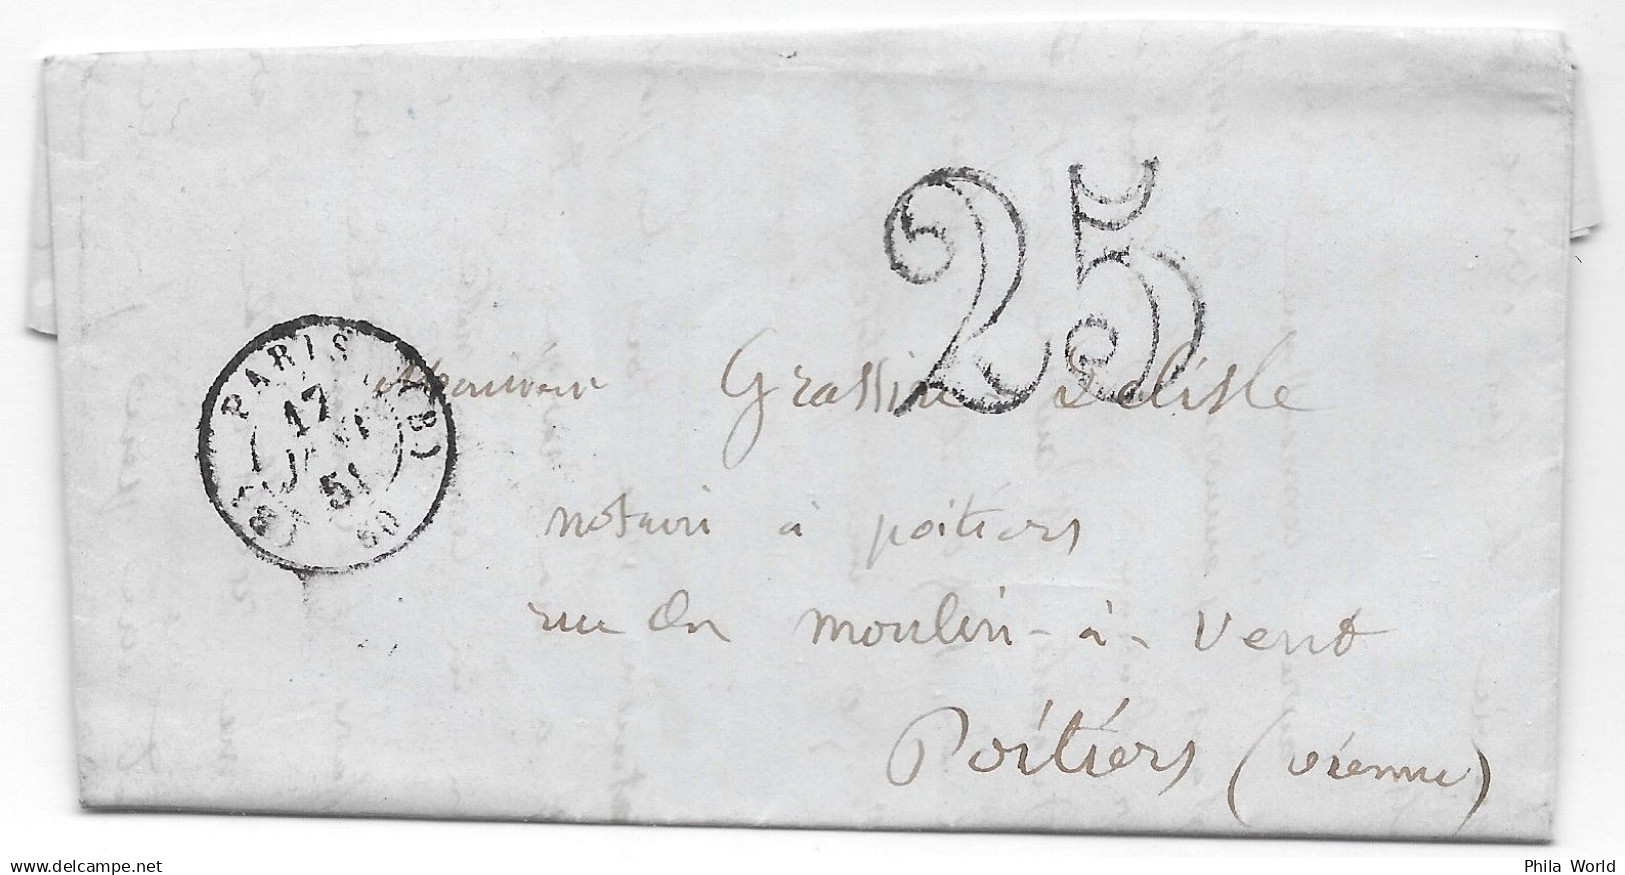 25
PARIS (B)
17
JANV
51
(B) 60
Monsieur Grassin Delisle
notaire à poitiers
rue du moulin-à-vent
Poitiers (vienne)
www.delcampe.net
Phila World